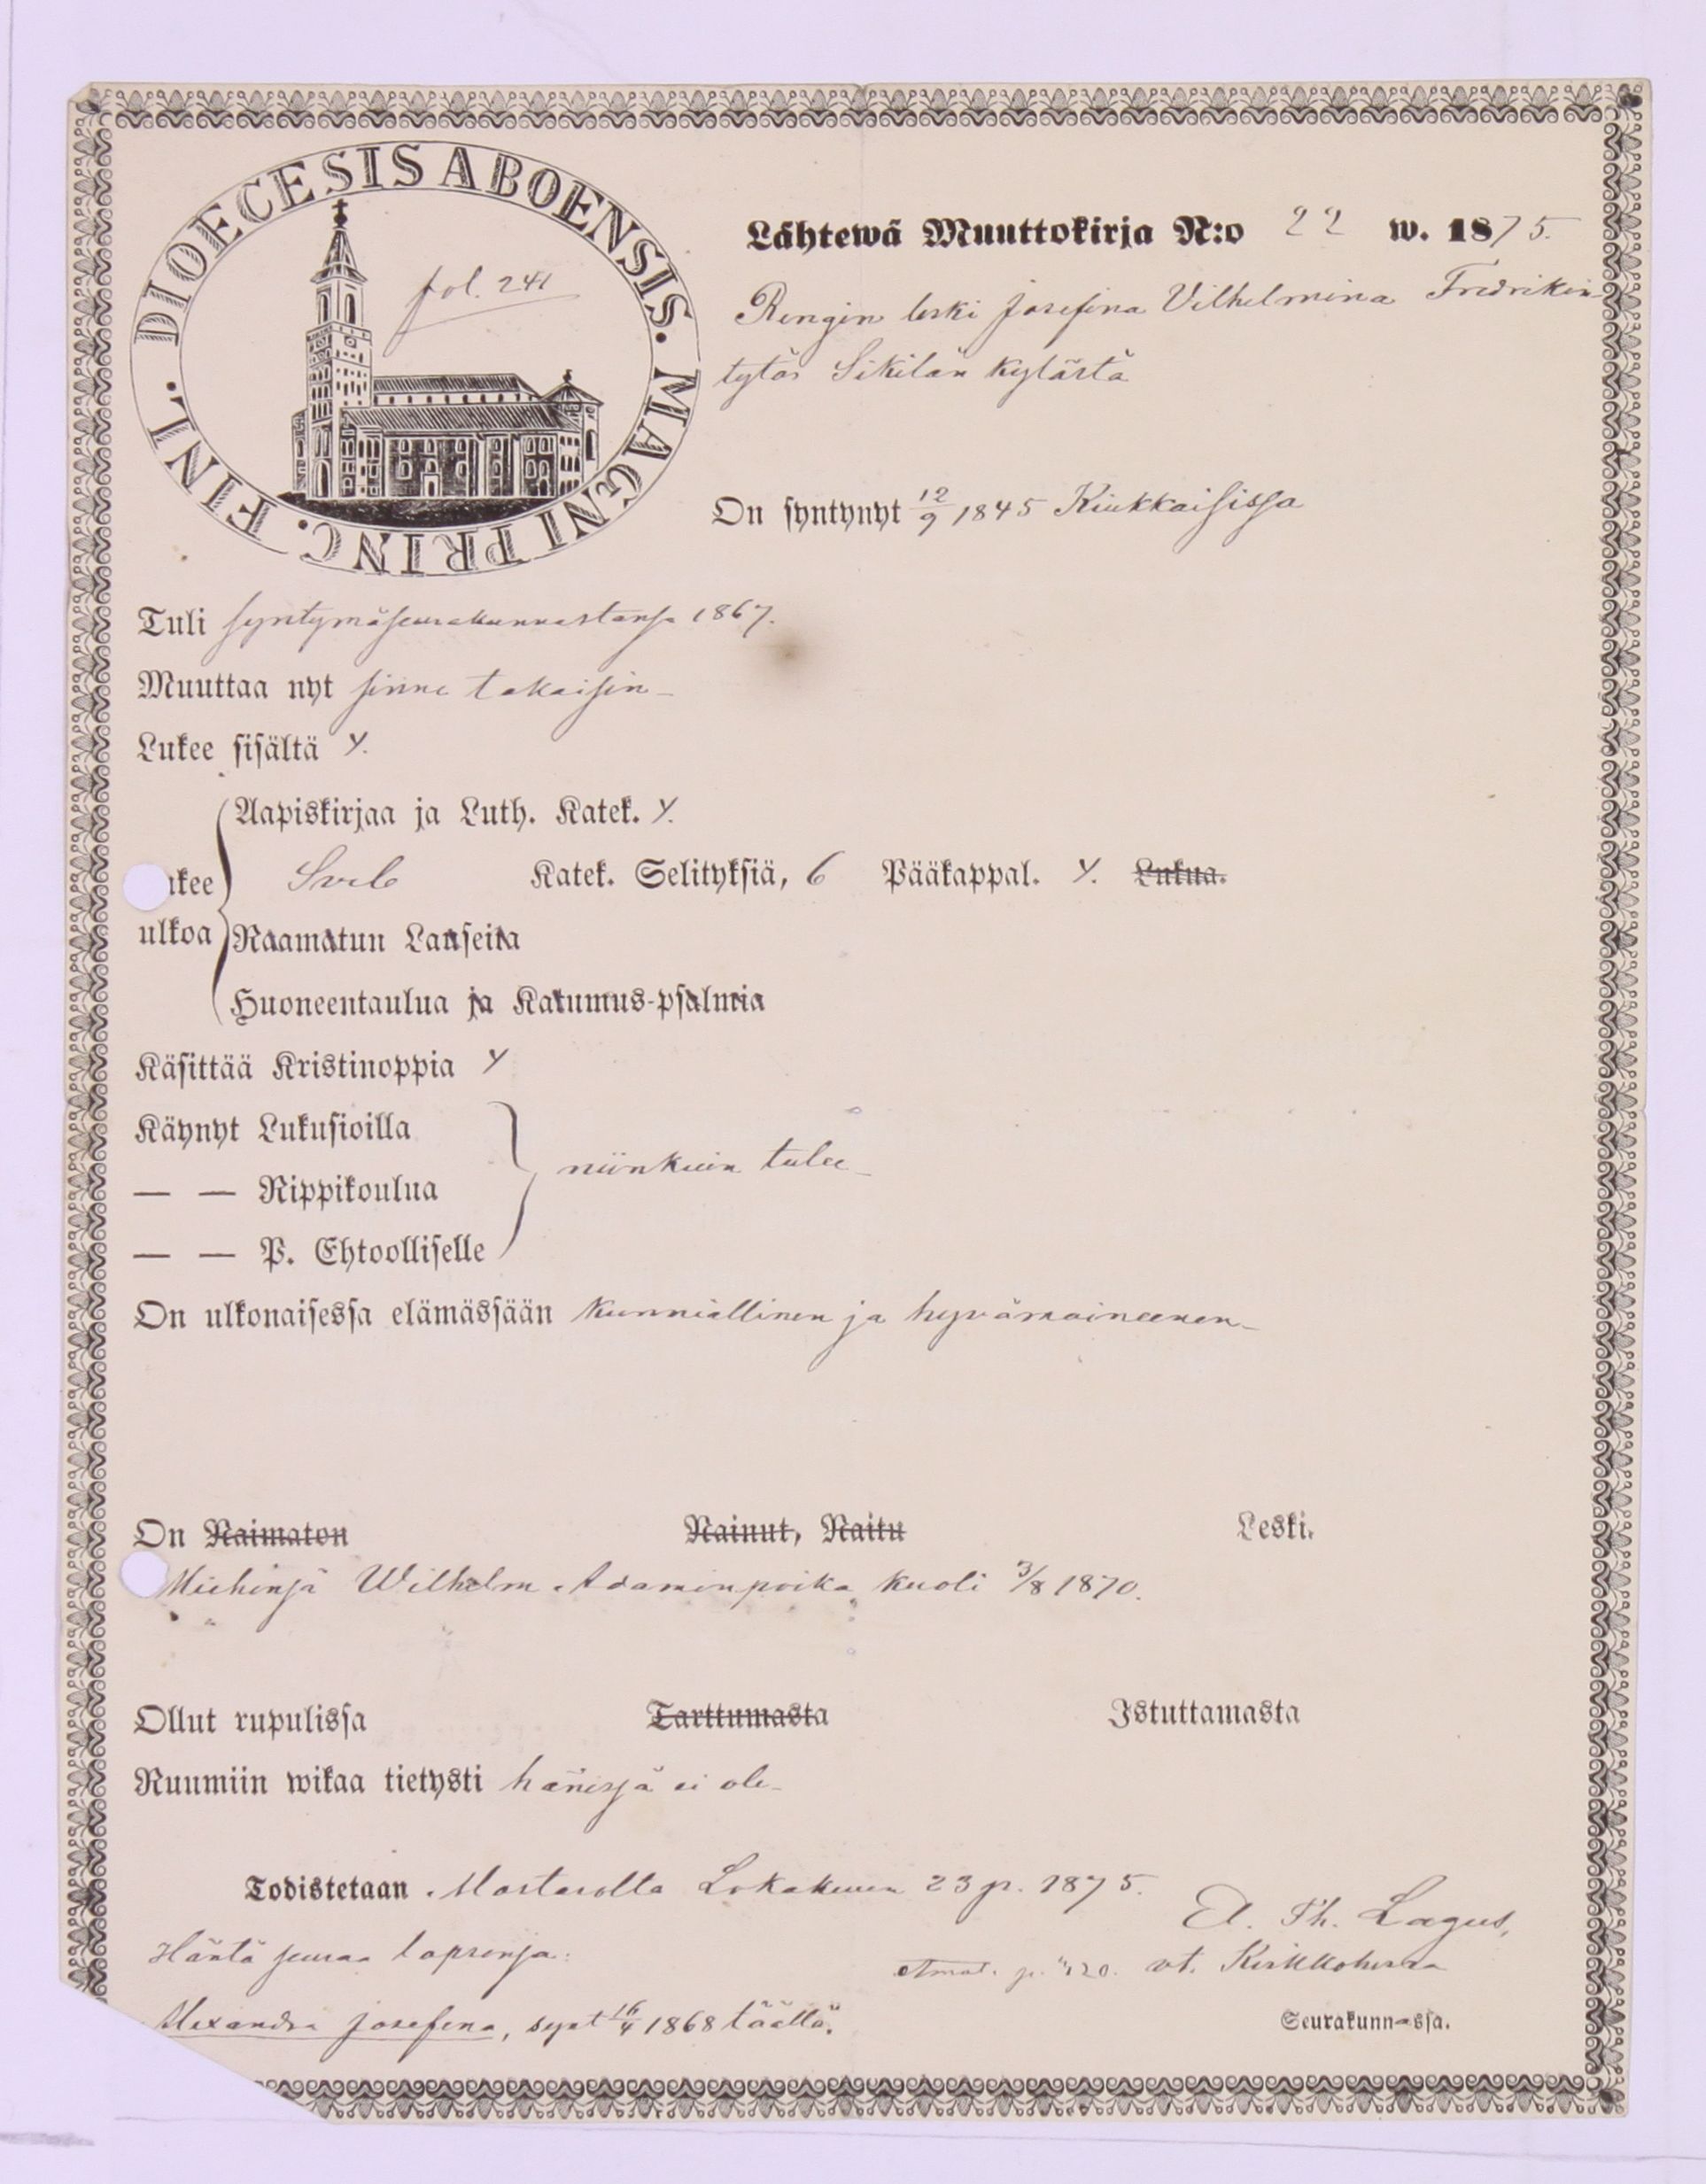 DIOECESIS ABOENSIS. MAGNI PRINC. FINL.
fol. 241
Lähtewä Muuttokirja N:o 22 w. 1875.
Rengin leski Josefina Vilhelmina Fredrikin-
tytär Sikilän kylästä
On syntynyt 12/9 1845 Kiukkaisissa
Tuli syntymäseurakunnastansa 1867.
Muuttaa nyt sinne takaisin
Lukee sisältä y.
Aapiskirjaa ja Luth. Katek. y.
ukee Sveb Katek. Selityksiä, 6 Pääkappal. y. Lukua.
ulkoa
Raamatun Lauseita
Huoneentaulua ja Katumus-psalmia
Käsittää Kristinoppia y
Käynyt Lukusioilla
— — Rippikoulua
niinkuin tulee
— — P. Ehtoolliselle
On ulkonaisessa elämässään kunniallinen ja hyvämaineenen
On Naimaton Nainut, Naitu Leski.
Miehensä Wilhelm Adaminpoika kuoli 3/8 1870.
Ollut rupulissa Tarttumasta Istuttamasta
Ruumiin wikaa tietysti hänessä ei ole
Todistetaan Mostarolla Lokakuun 23 p. 1875.
A. Th. Lagus,
vt. Kirkkoherra
Häntä seuraa lapsensa:
Alexandra Josefina, synt 16/4 1868 täällä.
Seurakunnassa.